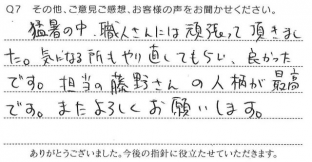 Q7 その他、ご意見ご感想、お客様の声をお聞かせください。
猛暑の中、職人さんには頑張って頂きまし
た。気になる所もやり直してもらい、良かった
です。担当の藤野さんの人柄が最高
です。またよろしくお願いします。
ありがとうございました。今後の指針に役立たせていただきます。